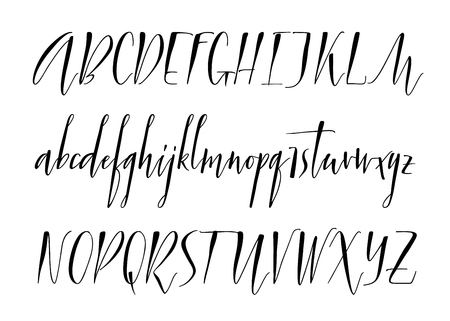 ABCDEFGHIJKLM
abcdefghijklmnopqrstuvwxyz
NOPQRSTUVWXYZ